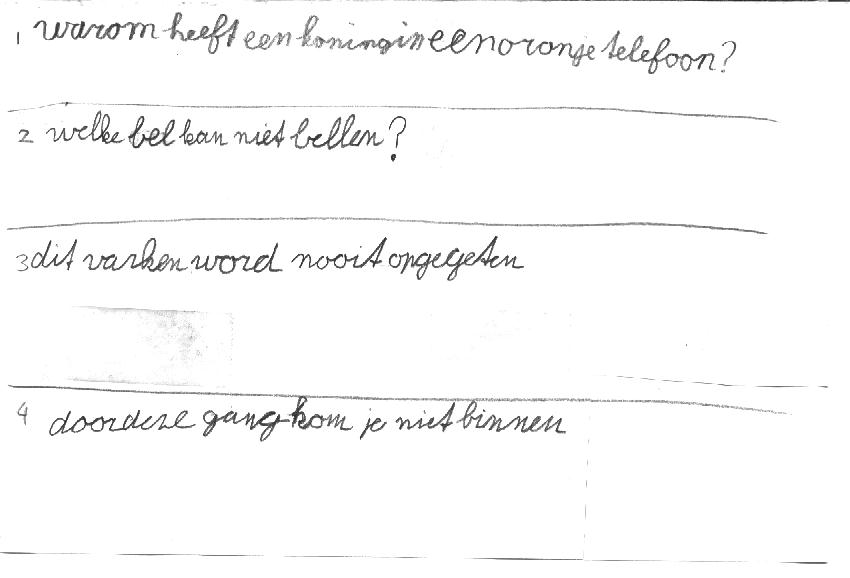 1 warom heeft een koningin een oranje telefoon?
2 welke bel kan niet bellen?
3 dit varken word nooit opgegeten
4 door deze gang kom je niet binnen